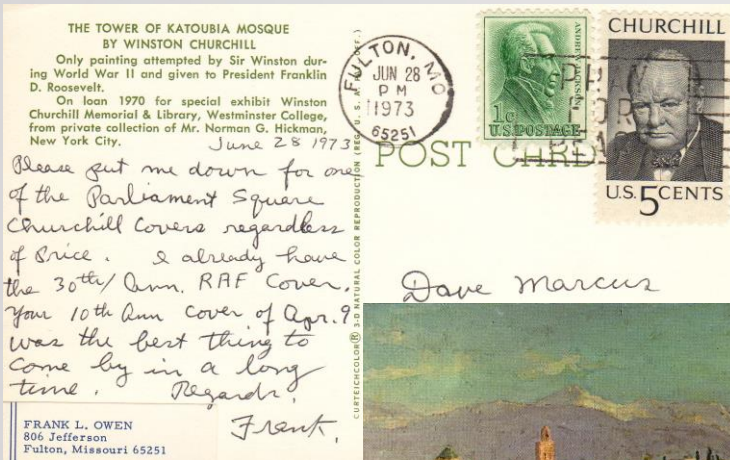 THE TOWER OF KATOUBIA MOSQUE
BY WINSTON CHURCHILL
Only painting attempted by Sir Winston dur-
ing World War II and given to President Franklin
D. Roosevelt.
On loan 1970 for special exhibit Winston
Churchill Memorial & Library, Westminster College,
from private collection of Mr. Norman G. Hickman,
New York City.
June 28 1973
Please put me down for one
of the Parliament Square
Churchill Covers regardless
of Price. I already have
the 30th/Ann. RAF Cover.
Your 10th Ann Cover of Apr. 9
was the best thing to
come by in a long
time. Regards,
Frank.
FRANK L. OWEN
806 Jefferson
Fulton, Missouri 65251
CURTEICHCOLOR® 3-D NATURAL COLOR REPRODUCTION (REG. U.S.A.
FULTON, MO
JUN 28
PM
1973
65251
ANDREW JACKSON
1c
U.S. POSTAGE
CHURCHILL
U.S. 5 CENTS
POST CARD
Dave Marcus